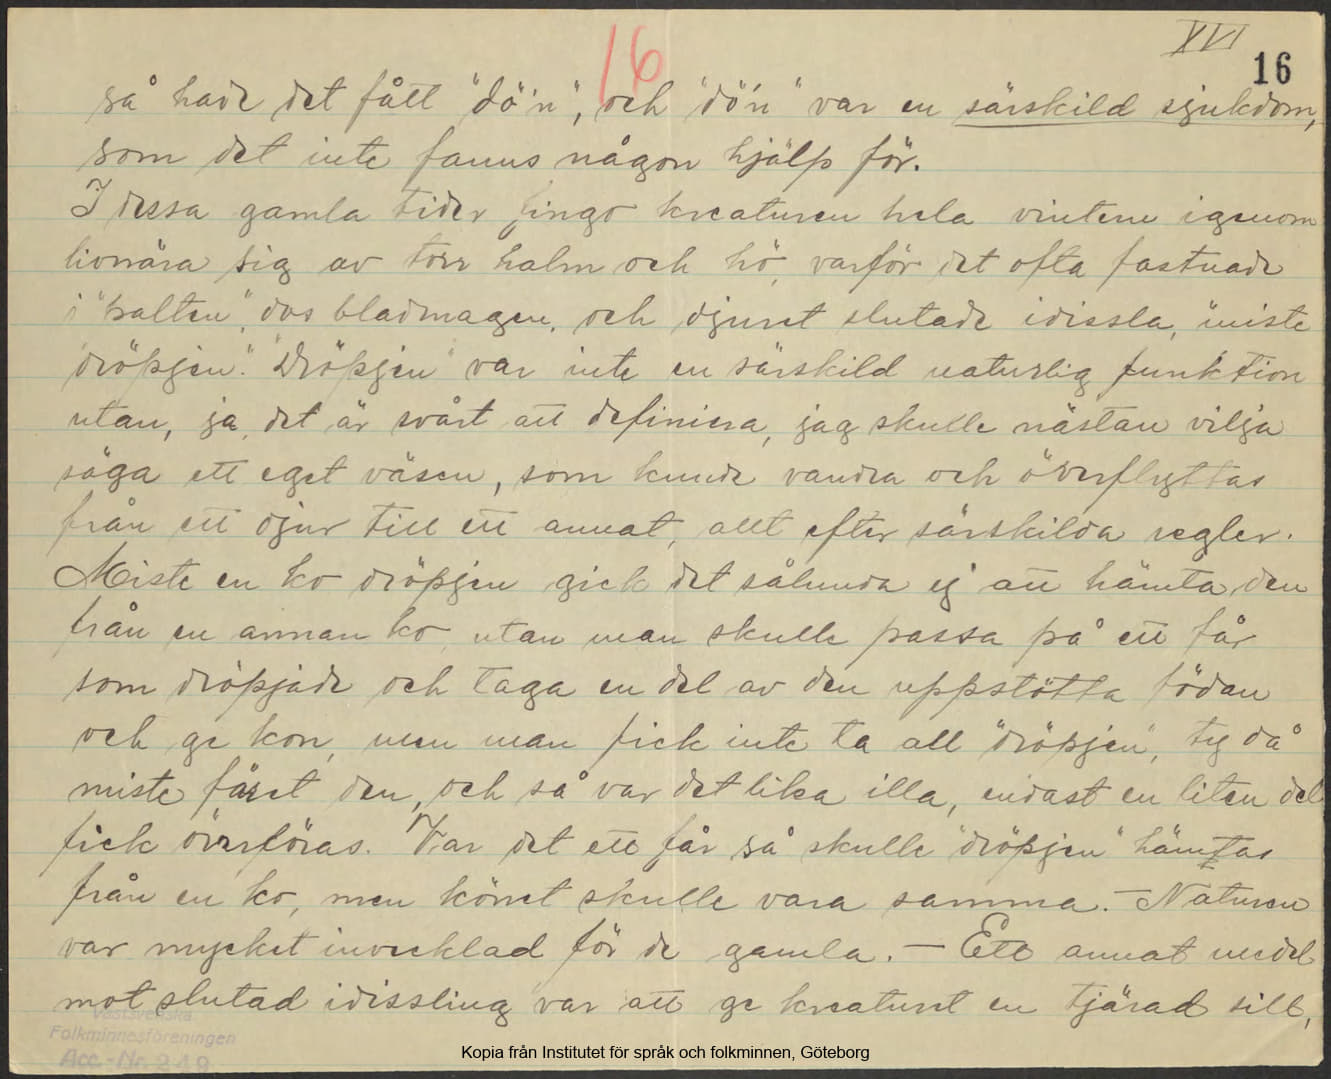 16
XVI
16
så hade det fått "dö'n", och "dö'n" var en särskild sjukdom,
som det inte fanns någon hjälp för.
I dessa gamla tider fingo kreaturen hela vintern igenom
livnära sig av torr halm och hö, varför det ofta fastnade
i "balten", dvs bladmagen, och djuret slutade idissla, "miste
dröpjen". "Dröpjen" var inte en särskild naturlig funktion
utan, ja, det är svårt att definiera, jag skulle nästan vilja
säga ett eget väsen, som kunde vandra och överflyttas
från ett djur till ett annat, allt efter särskilda regler.
Miste en ko dröpjen gick det sålunda ej att hämta den
från en annan ko, utan man skulle passa på ett får
som dröpjade och taga en del av den uppstötta födan
och ge kon, men man fick inte ta all "dröpjen", ty då
miste fåret den, och så var det lika illa, endast en liten del
fick överföras. Var det ett får så skulle "dröpjen" hämtas
från en ko, men könet skulle vara samma. - Naturen
var mycket invecklad för de gamla. - Ett annat medel
mot slutad idissling var att ge kreaturet en tjärad sill,
Västsvenska
Folkminnesföreningen
Acc.-Nr. 249
Kopia från Institutet för språk och folkminnen, Göteborg